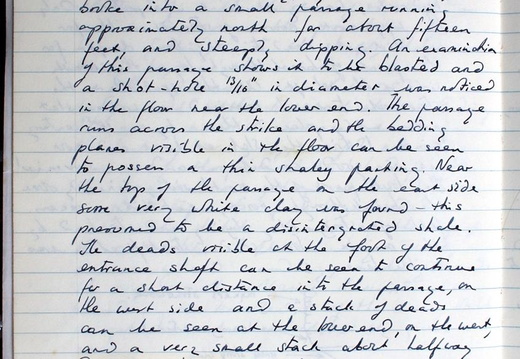 broke into a small passage running
approximately north for about fifteen
feet, and steeply dipping. An examination
of this passage shows it to be blasted and
a shot-hole 13/16" in diameter was noticed
in the floor near the lower end. The passage
runs across the strike and the bedding
planes visible in the floor can be seen
to possess a thin shaley parting. Near
the top of the passage on the east side
some very white clay was found - this
presumed to be a disintegrated shale.
The deads visible at the foot of the
entrance shaft can be seen to continue
for a short distance into the passage, on
the west side and a stack of deads
can be seen at the lower end, on the west,
and a very small stack about halfway